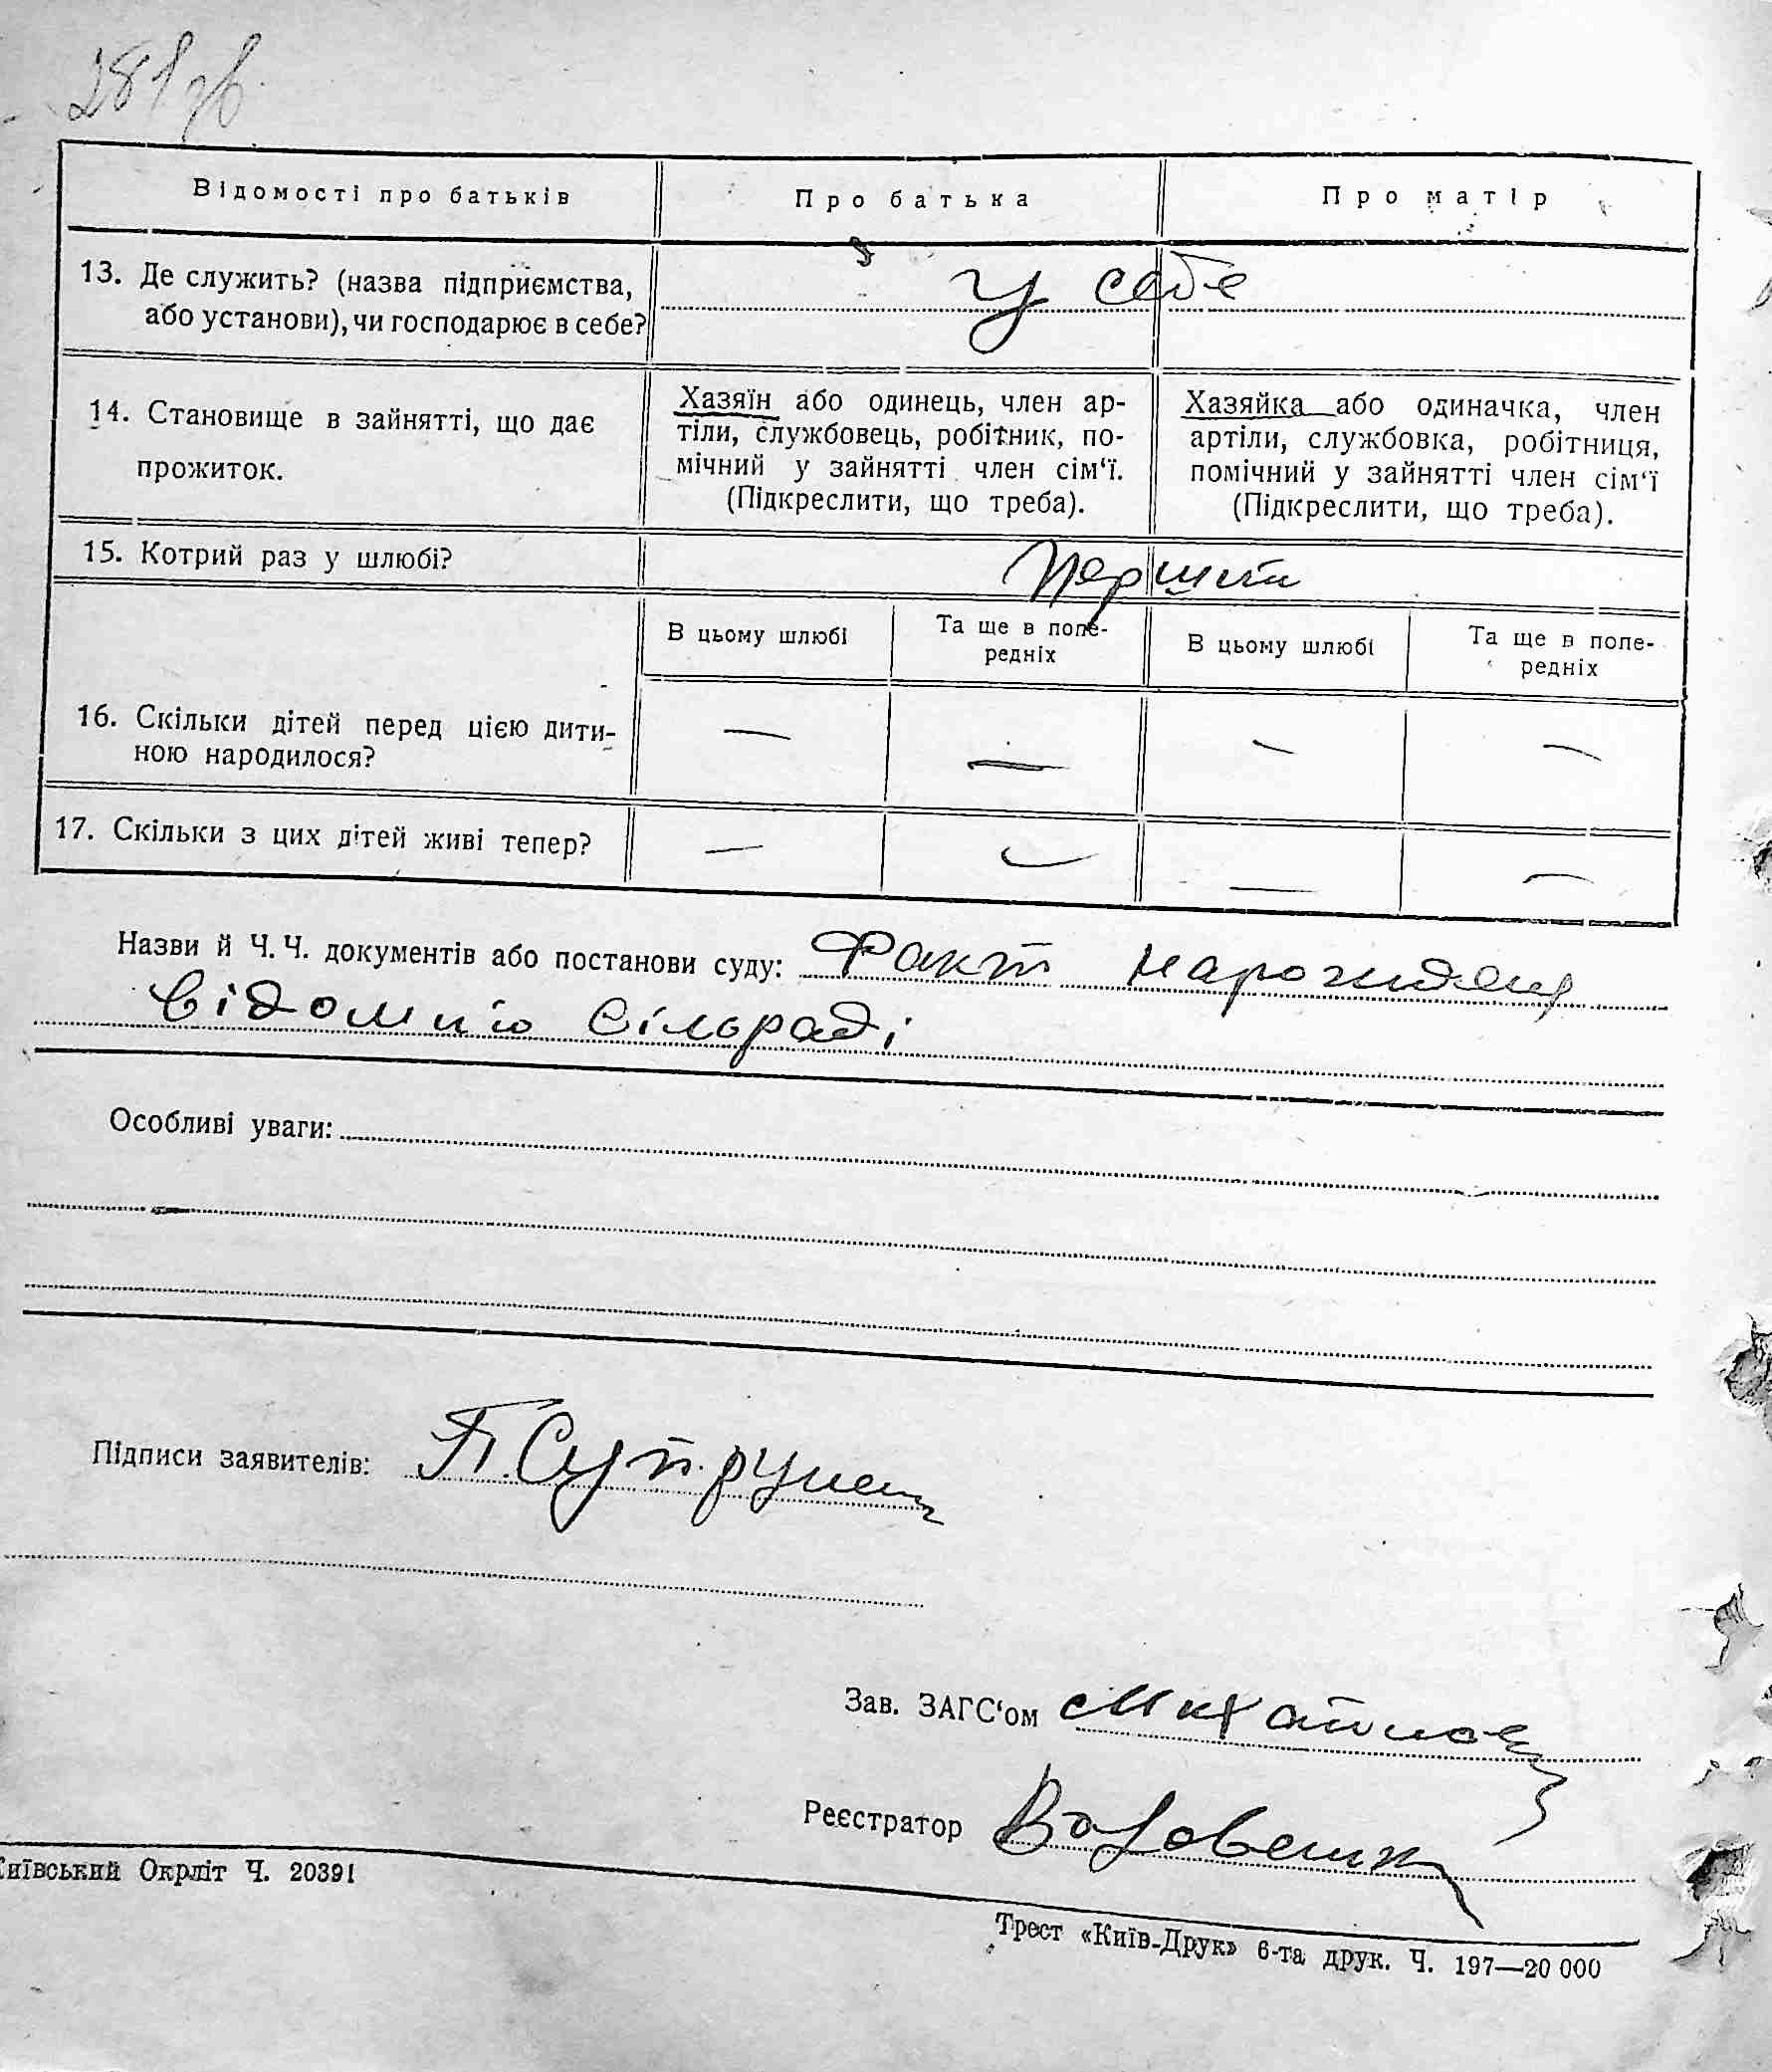 281 зв.
Відомості про батьків
Про батька
Про матір
13. Де служить? (назва підприємства,
або установи), чи господарює в себе?
у себе
14. Становище в зайнятті, що дає
прожиток.
Хазяїн або одинець, член ар-
тіли, службовець, робітник, по-
мічний у зайнятті член сім‘ї.
(Підкреслити, що треба).
Хазяйка або одиначка, член
артіли, службовка, робітниця,
помічний у зайнятті член сім‘ї
(Підкреслити, що треба).
15. Котрий раз у шлюбі?
Перший
В цьому шлюбі
Та ще в попе-
редніх
В цьому шлюбі
Та ще в попе-
редніх
16. Скільки дітей перед цією дити-
ною народилося?
— — — —
17. Скільки з цих дітей живі тепер?
— — — —
Назви й Ч. Ч. документів або постанови суду: Факт народжен
відомий Сільраді
Особливі уваги:
Підписи заявителів: П. Супрунец
Зав. ЗАГС‘ом
Реєстратор
Київський Окрліт Ч. 20391
Трест «Київ-Друк» 6-та друк. Ч. 197—20 000